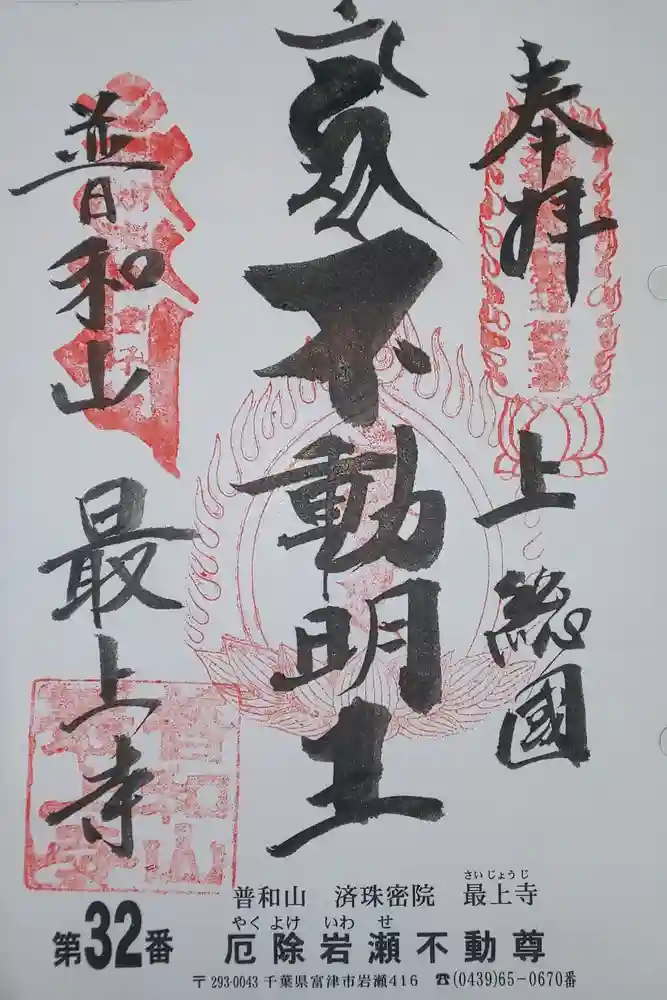 奉拝
上総國
不動明王
普和山
最上寺
普和山　済珠密院　最上寺
さいじょうじ
第32番
厄除岩瀬不動尊
やくよけ　いわせ
〒293-0043 千葉県富津市岩瀬416　☎(0439)65-0670番